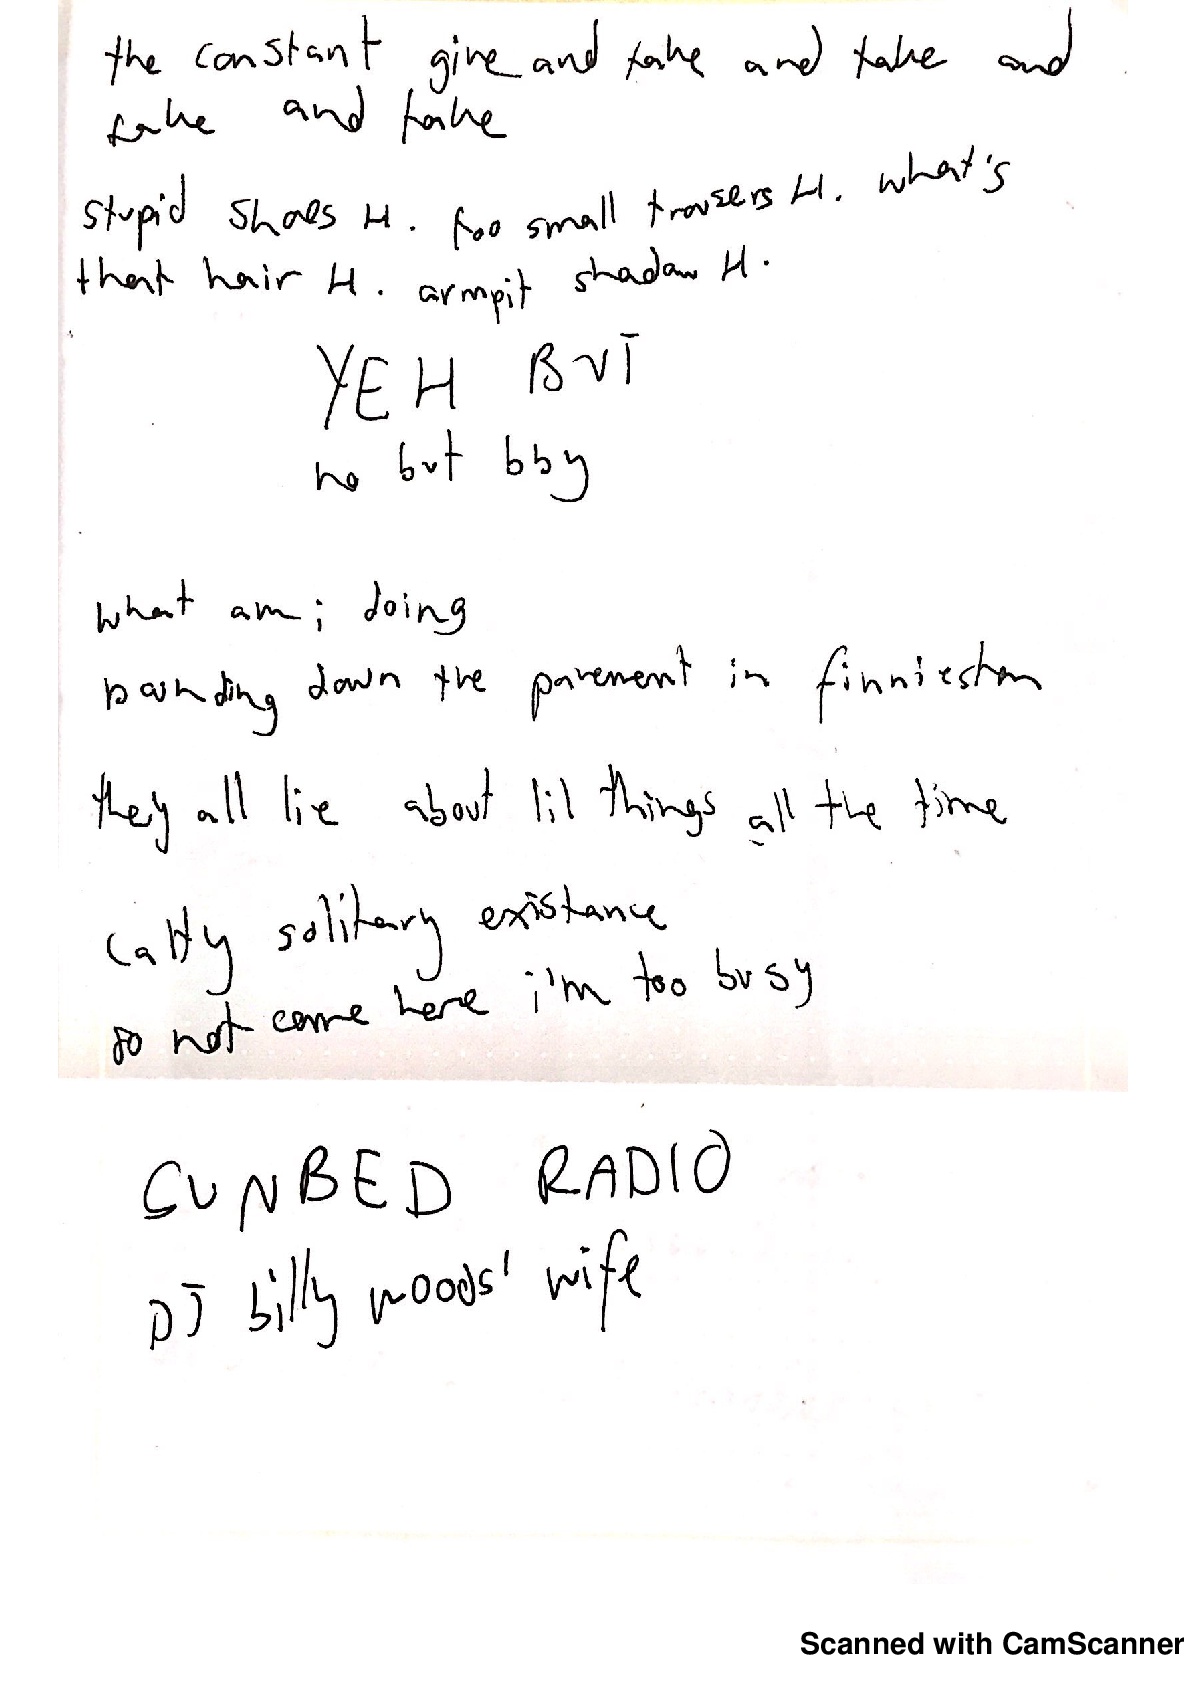 the constant give and take and take and
take and take
stupid shoes H. too small trousers H. what's
that hair H. armpit shadow H.
YEH BUT
no but bby
what am i doing
bounding down the pavement in finnieston
they all lie about lil things all the time
catty solitary existance
do not come here i'm too busy
SUNBED RADIO
DJ billy woods' wife
Scanned with CamScanner